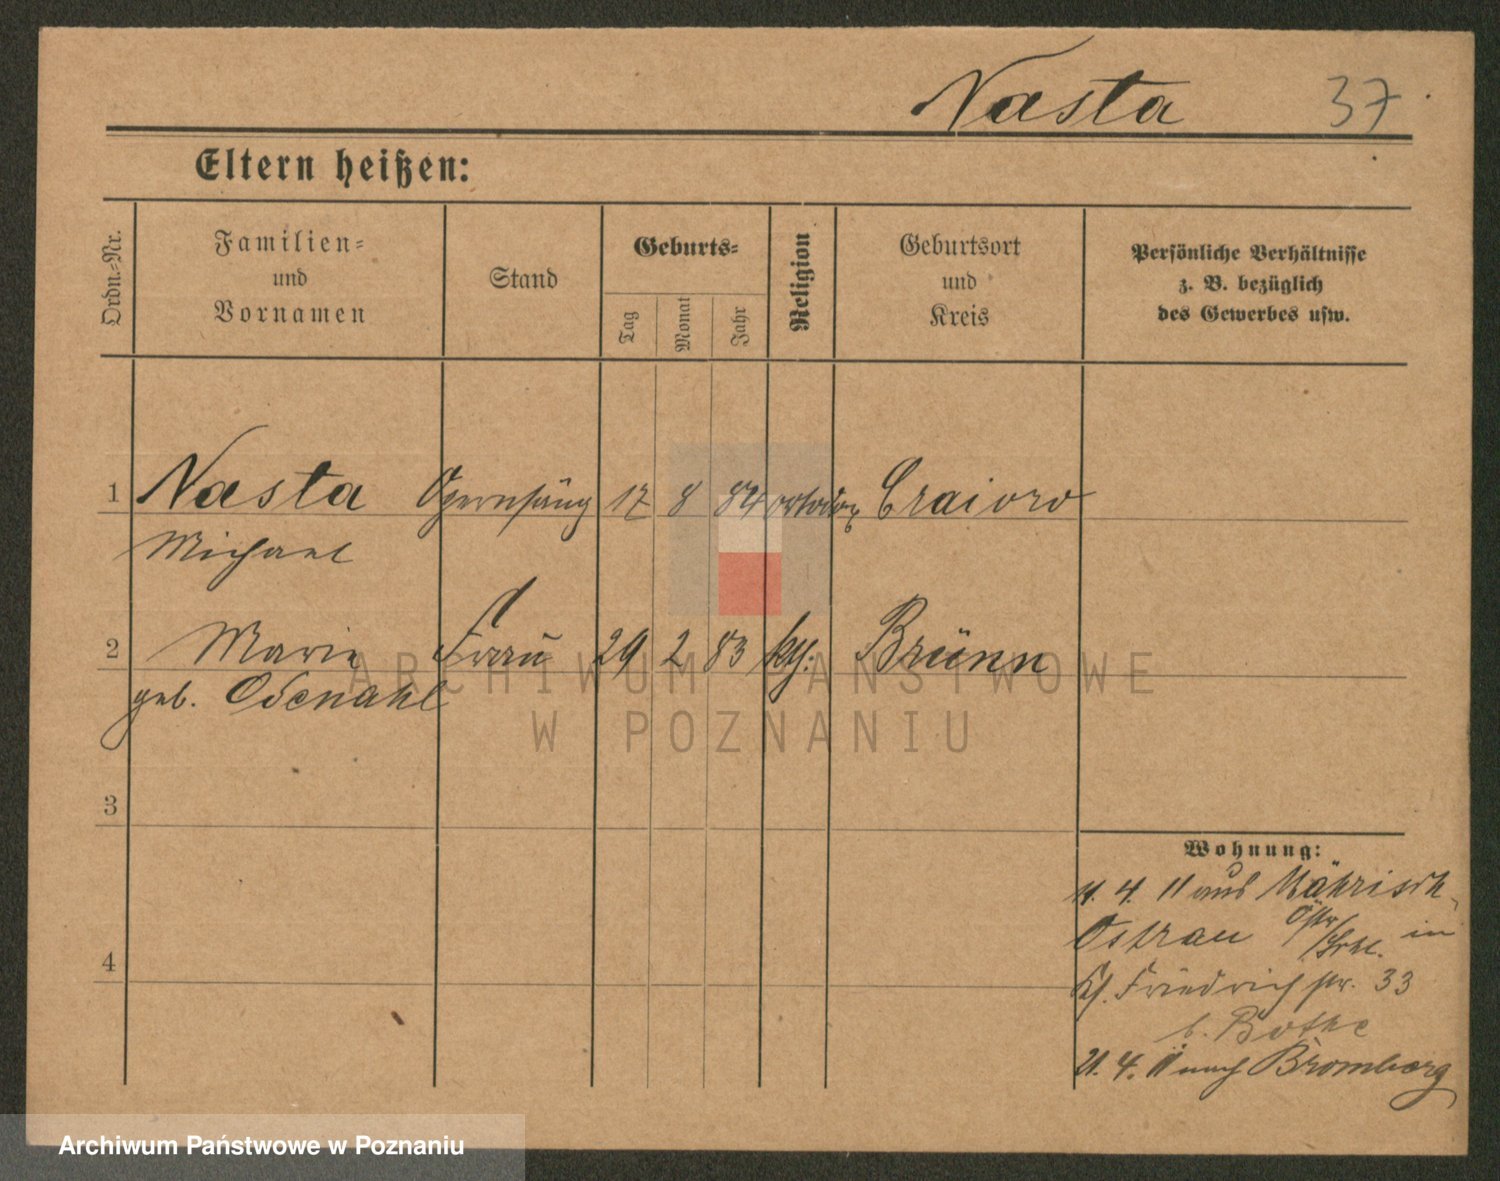 Nasta 37
Eltern heißen:
Ordn.-Nr.
Familien-
und
Vornamen
Stand
Geburts-
Tag
Monat
Jahr
Religion
Geburtsort
und
Kreis
Persönliche Verhältnisse
z. B. bezüglich
des Gewerbes usw.
1 Nasta Opernsäng 17 8 84 ortodox Craiova
Michael
2 Marie Frau 29 2 83 kth. Brünn
geb. Odenahl
3
4
Wohnung:
4. 11 aus Mährisch
Ostrau Östr in
Friedrichstr. 33
b. Bothe
21. 4. 11 nach Bromberg
ARCHIWUM PAŃSTWOWE
W POZNANIU
Archiwum Państwowe w Poznaniu